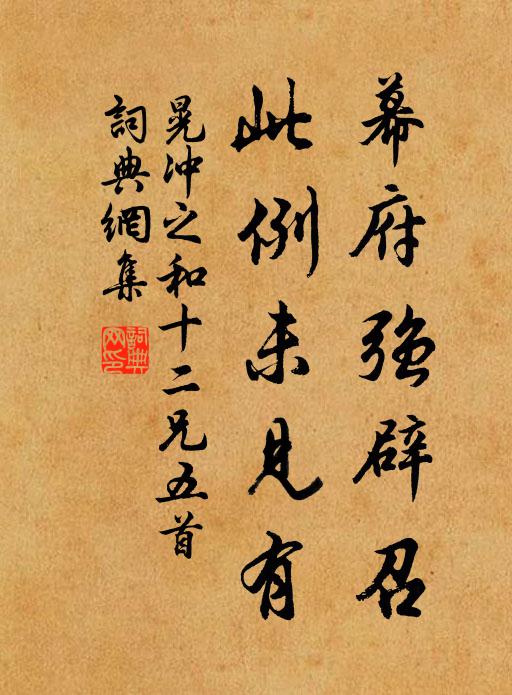 幕府強辟召
此例未見有
晁冲之和十二兄五首
詞典網集
詞典網印